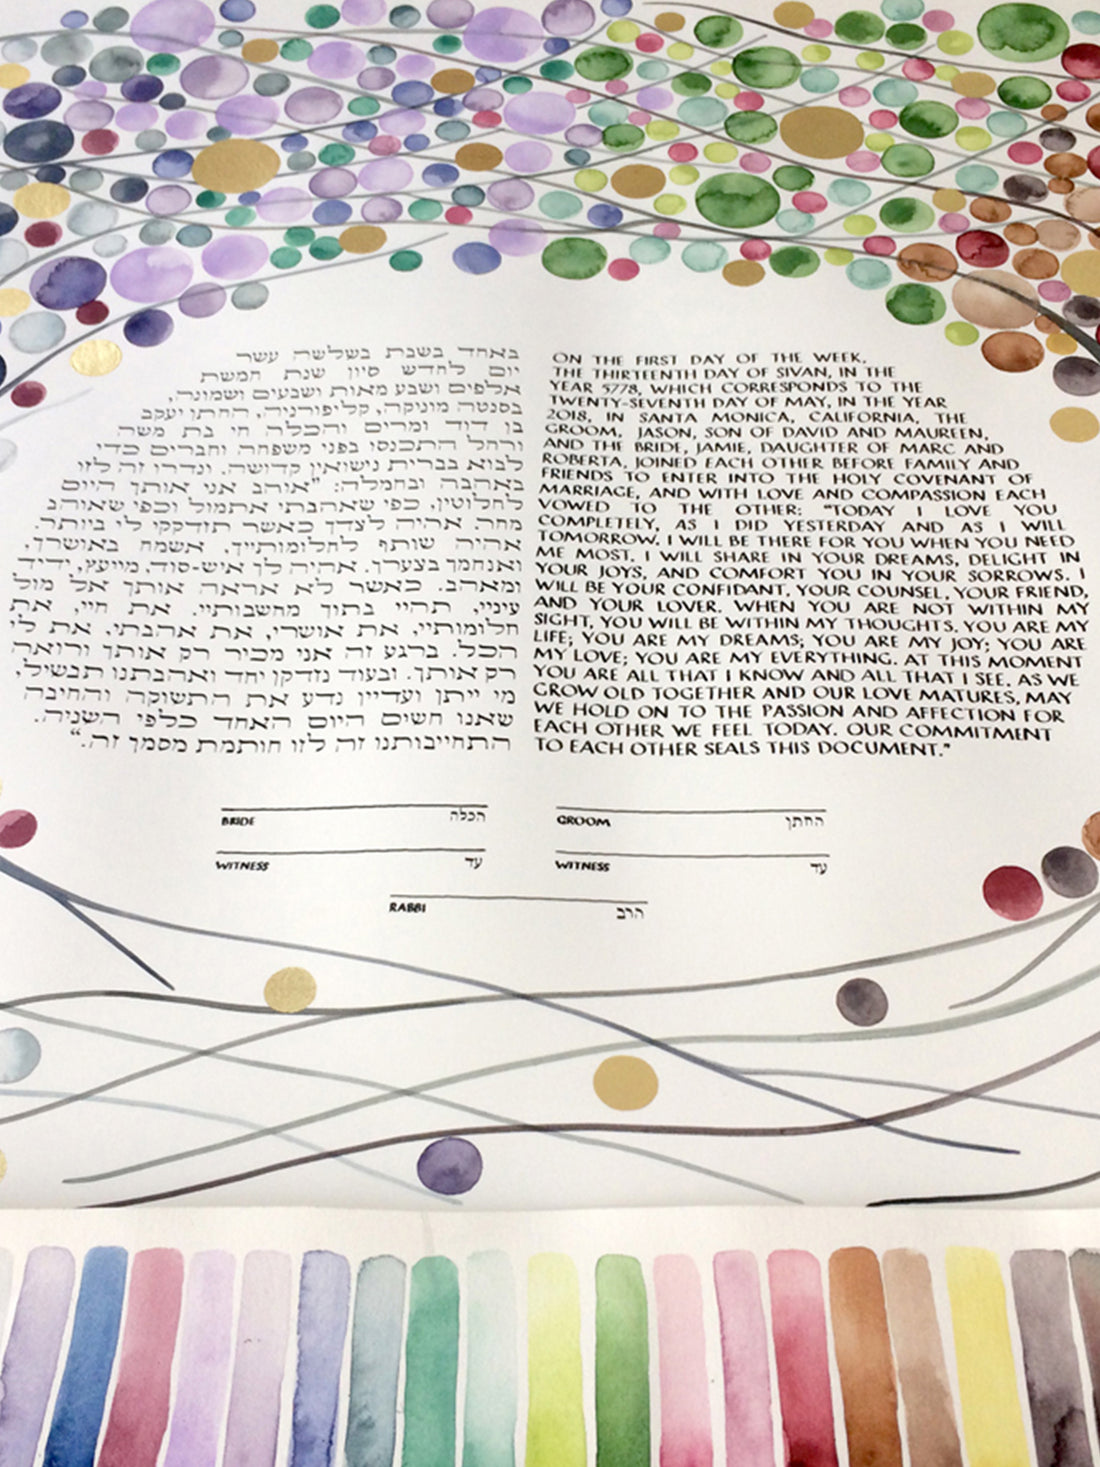 באחד בשבת בשלשה עשר
יום לחדש סיון שנת חמשת
אלפים ושבע מאות ושבעים ושמונה,
בסנטה מוניקה, קליפורניה, החתן יעקב
בן דוד ומרים והכלה חי בת משה
ורחל התכנסו בפני משפחה וחברים כדי
לבוא בברית נישואין קדושה. ונדרו זה לזו
באהבה ובחמלה: "אוהב אני אותך היום
לחלוטין, כפי שאהבתי אתמול וכפי שאוהב
מחר. אהיה לצדך כאשר תזדקקי לי ביותר.
אהיה שותף לחלומותייך, אשמח באושרך,
ואנחמך בצערך. אהיה לך איש-סוד, מייעץ, ידיד
ומאהב. כאשר לא אראה אותך אל מול
עיניי, תהיי בתוך מחשבותיי. את חיי, את
חלומותיי, את אושרי, את אהבתי, את לי
הכל. ברגע זה אני מכיר רק אותך ורואה
רק אותך. ובעוד נזדקן יחד ואהבתנו תבשיל,
מי ייתן ועדיין נדע את התשוקה והחיבה
שאנו חשים היום האחד כלפי השניה.
התחייבותנו זה לזו חותמת מסמך זה."
ON THE FIRST DAY OF THE WEEK,
THE THIRTEENTH DAY OF SIVAN, IN THE
YEAR 5778, WHICH CORRESPONDS TO THE
TWENTY-SEVENTH DAY OF MAY, IN THE YEAR
2018, IN SANTA MONICA, CALIFORNIA, THE
GROOM, JASON, SON OF DAVID AND MAUREEN,
AND THE BRIDE, JAMIE, DAUGHTER OF MARC AND
ROBERTA, JOINED EACH OTHER BEFORE FAMILY AND
FRIENDS TO ENTER INTO THE HOLY COVENANT OF
MARRIAGE, AND WITH LOVE AND COMPASSION EACH
VOWED TO THE OTHER: "TODAY I LOVE YOU
COMPLETELY, AS I DID YESTERDAY AND AS I WILL
TOMORROW. I WILL BE THERE FOR YOU WHEN YOU NEED
ME MOST. I WILL SHARE IN YOUR DREAMS, DELIGHT IN
YOUR JOYS, AND COMFORT YOU IN YOUR SORROWS. I
WILL BE YOUR CONFIDANT, YOUR COUNSEL, YOUR FRIEND,
AND YOUR LOVER. WHEN YOU ARE NOT WITHIN MY
SIGHT, YOU WILL BE WITHIN MY THOUGHTS. YOU ARE MY
LIFE; YOU ARE MY DREAMS; YOU ARE MY JOY; YOU ARE
MY LOVE; YOU ARE MY EVERYTHING. AT THIS MOMENT
YOU ARE ALL THAT I KNOW AND ALL THAT I SEE. AS WE
GROW OLD TOGETHER AND OUR LOVE MATURES, MAY
WE HOLD ON TO THE PASSION AND AFFECTION FOR
EACH OTHER WE FEEL TODAY. OUR COMMITMENT
TO EACH OTHER SEALS THIS DOCUMENT."
BRIDE הכלה
GROOM החתן
WITNESS עד
WITNESS עד
RABBI הרב